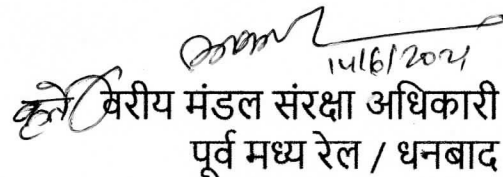 14/6/2021
कृते वरीय मंडल संरक्षा अधिकारी
पूर्व मध्य रेल / धनबाद